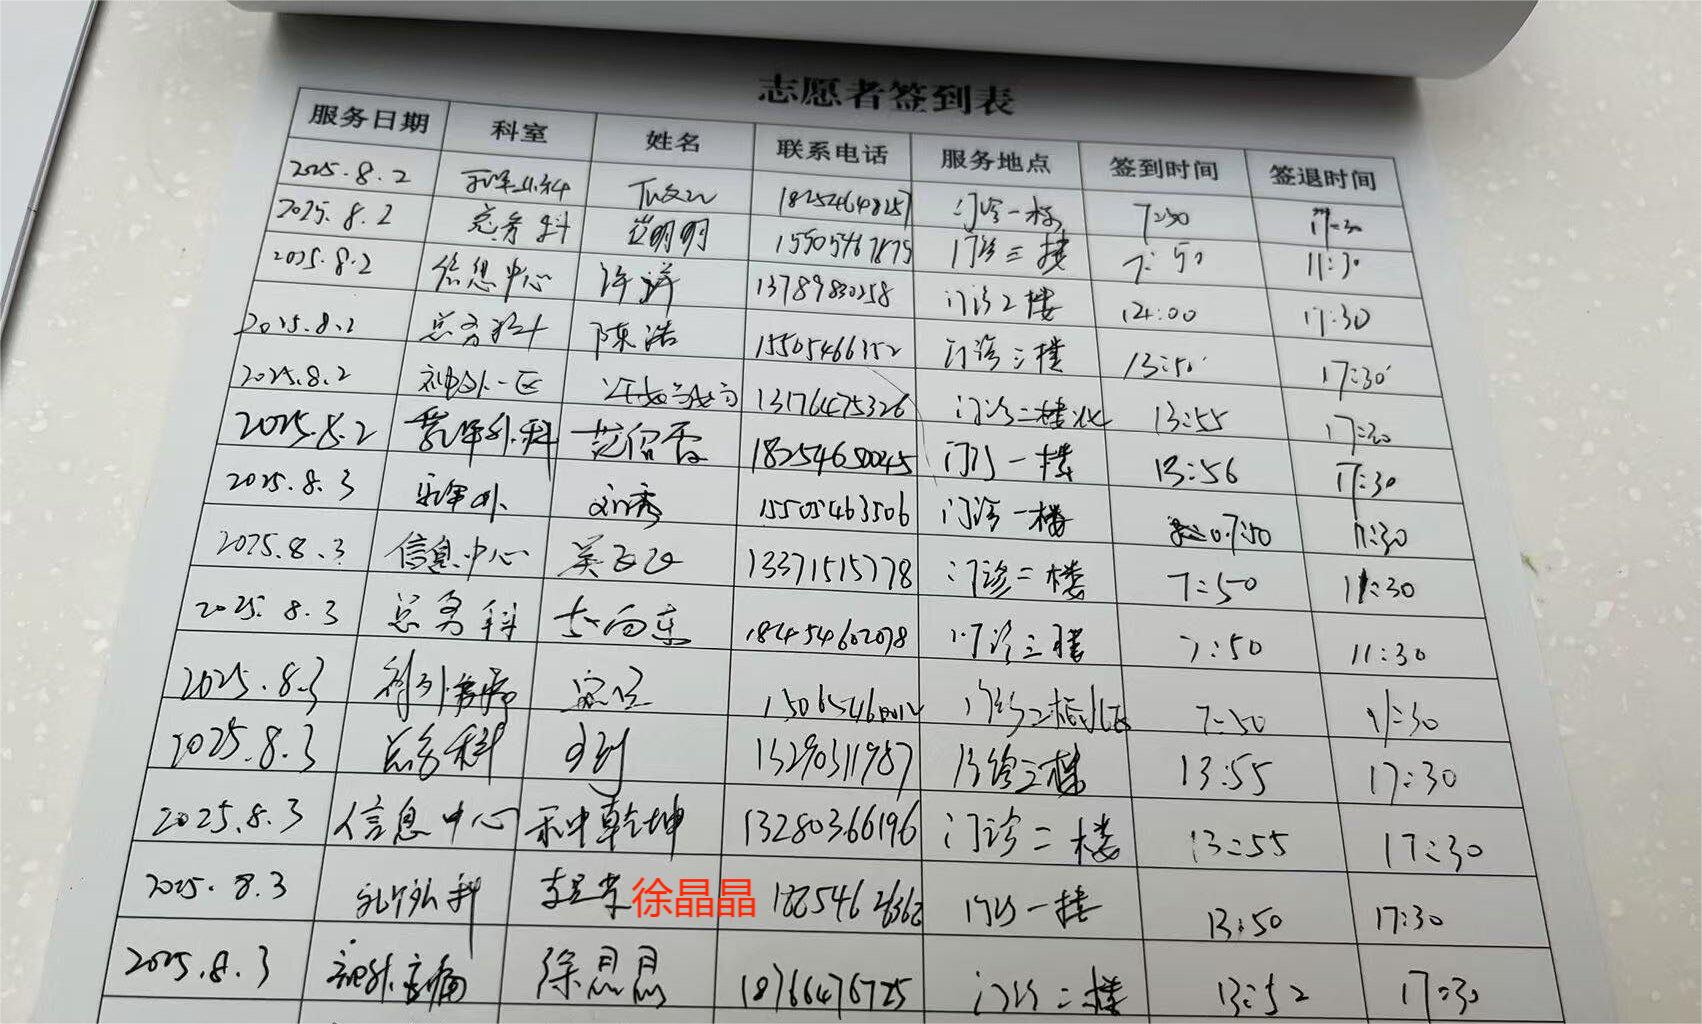 志愿者签到表
服务日期 科室 姓名 联系电话 服务地点 签到时间 签退时间
2025.8.2 18254648257 门诊一楼 7:50 17:30
2025.8.2 总务科 崔明明 15505467875 门诊三楼 7:50 11:30
2025.8.2 信息中心 许洋 13789830258 门诊2楼 14:00 17:30
2025.8.2 总务科 陈浩 15505466352 门诊三楼 13:50 17:30
2025.8.2 神外一区 13176475326 门诊二楼北 13:55 17:30
2025.8.2 乳甲外科 18254650045 门诊一楼 13:56 17:30
2025.8.3 乳甲外 刘秀 15505463506 门诊一楼 7:50 11:30
2025.8.3 信息中心 13371515778 门诊二楼 7:50 11:30
2025.8.3 总务科 18454602078 门诊三楼 7:50 11:30
2025.8.3 7:50 11:30
2025.8.3 总务科 13290311987 门诊三楼 13:55 17:30
2025.8.3 信息中心 种乾坤 13280366196 门诊二楼 13:55 17:30
2025.8.3 徐晶晶 门诊一楼 13:50 17:30
2025.8.3 徐晶晶 18766476725 门诊二楼 13:52 17:30